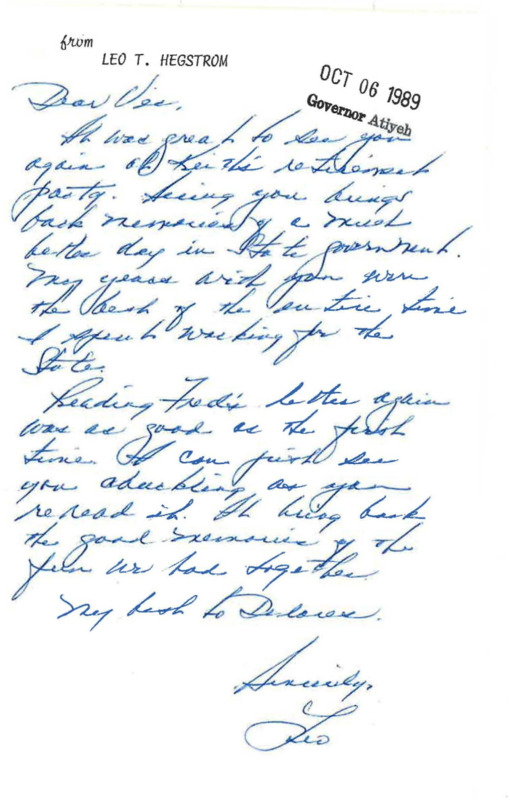 from
LEO T. HEGSTROM
OCT 06 1989
Governor Atiyeh
Dear Vic,
It was great to see you
again at Keith's retirement
party. Seeing you brings
back memories of a much
better day in State government.
My years with you were
the best of the entire time
I spent working for the
State.
Reading Fred's letter again
was as good as the first
time. I can just see
you chuckling as you
reread it. It bring back
the good memories of the
fun we had together.
My best to Dolores.
Sincerely,
Leo